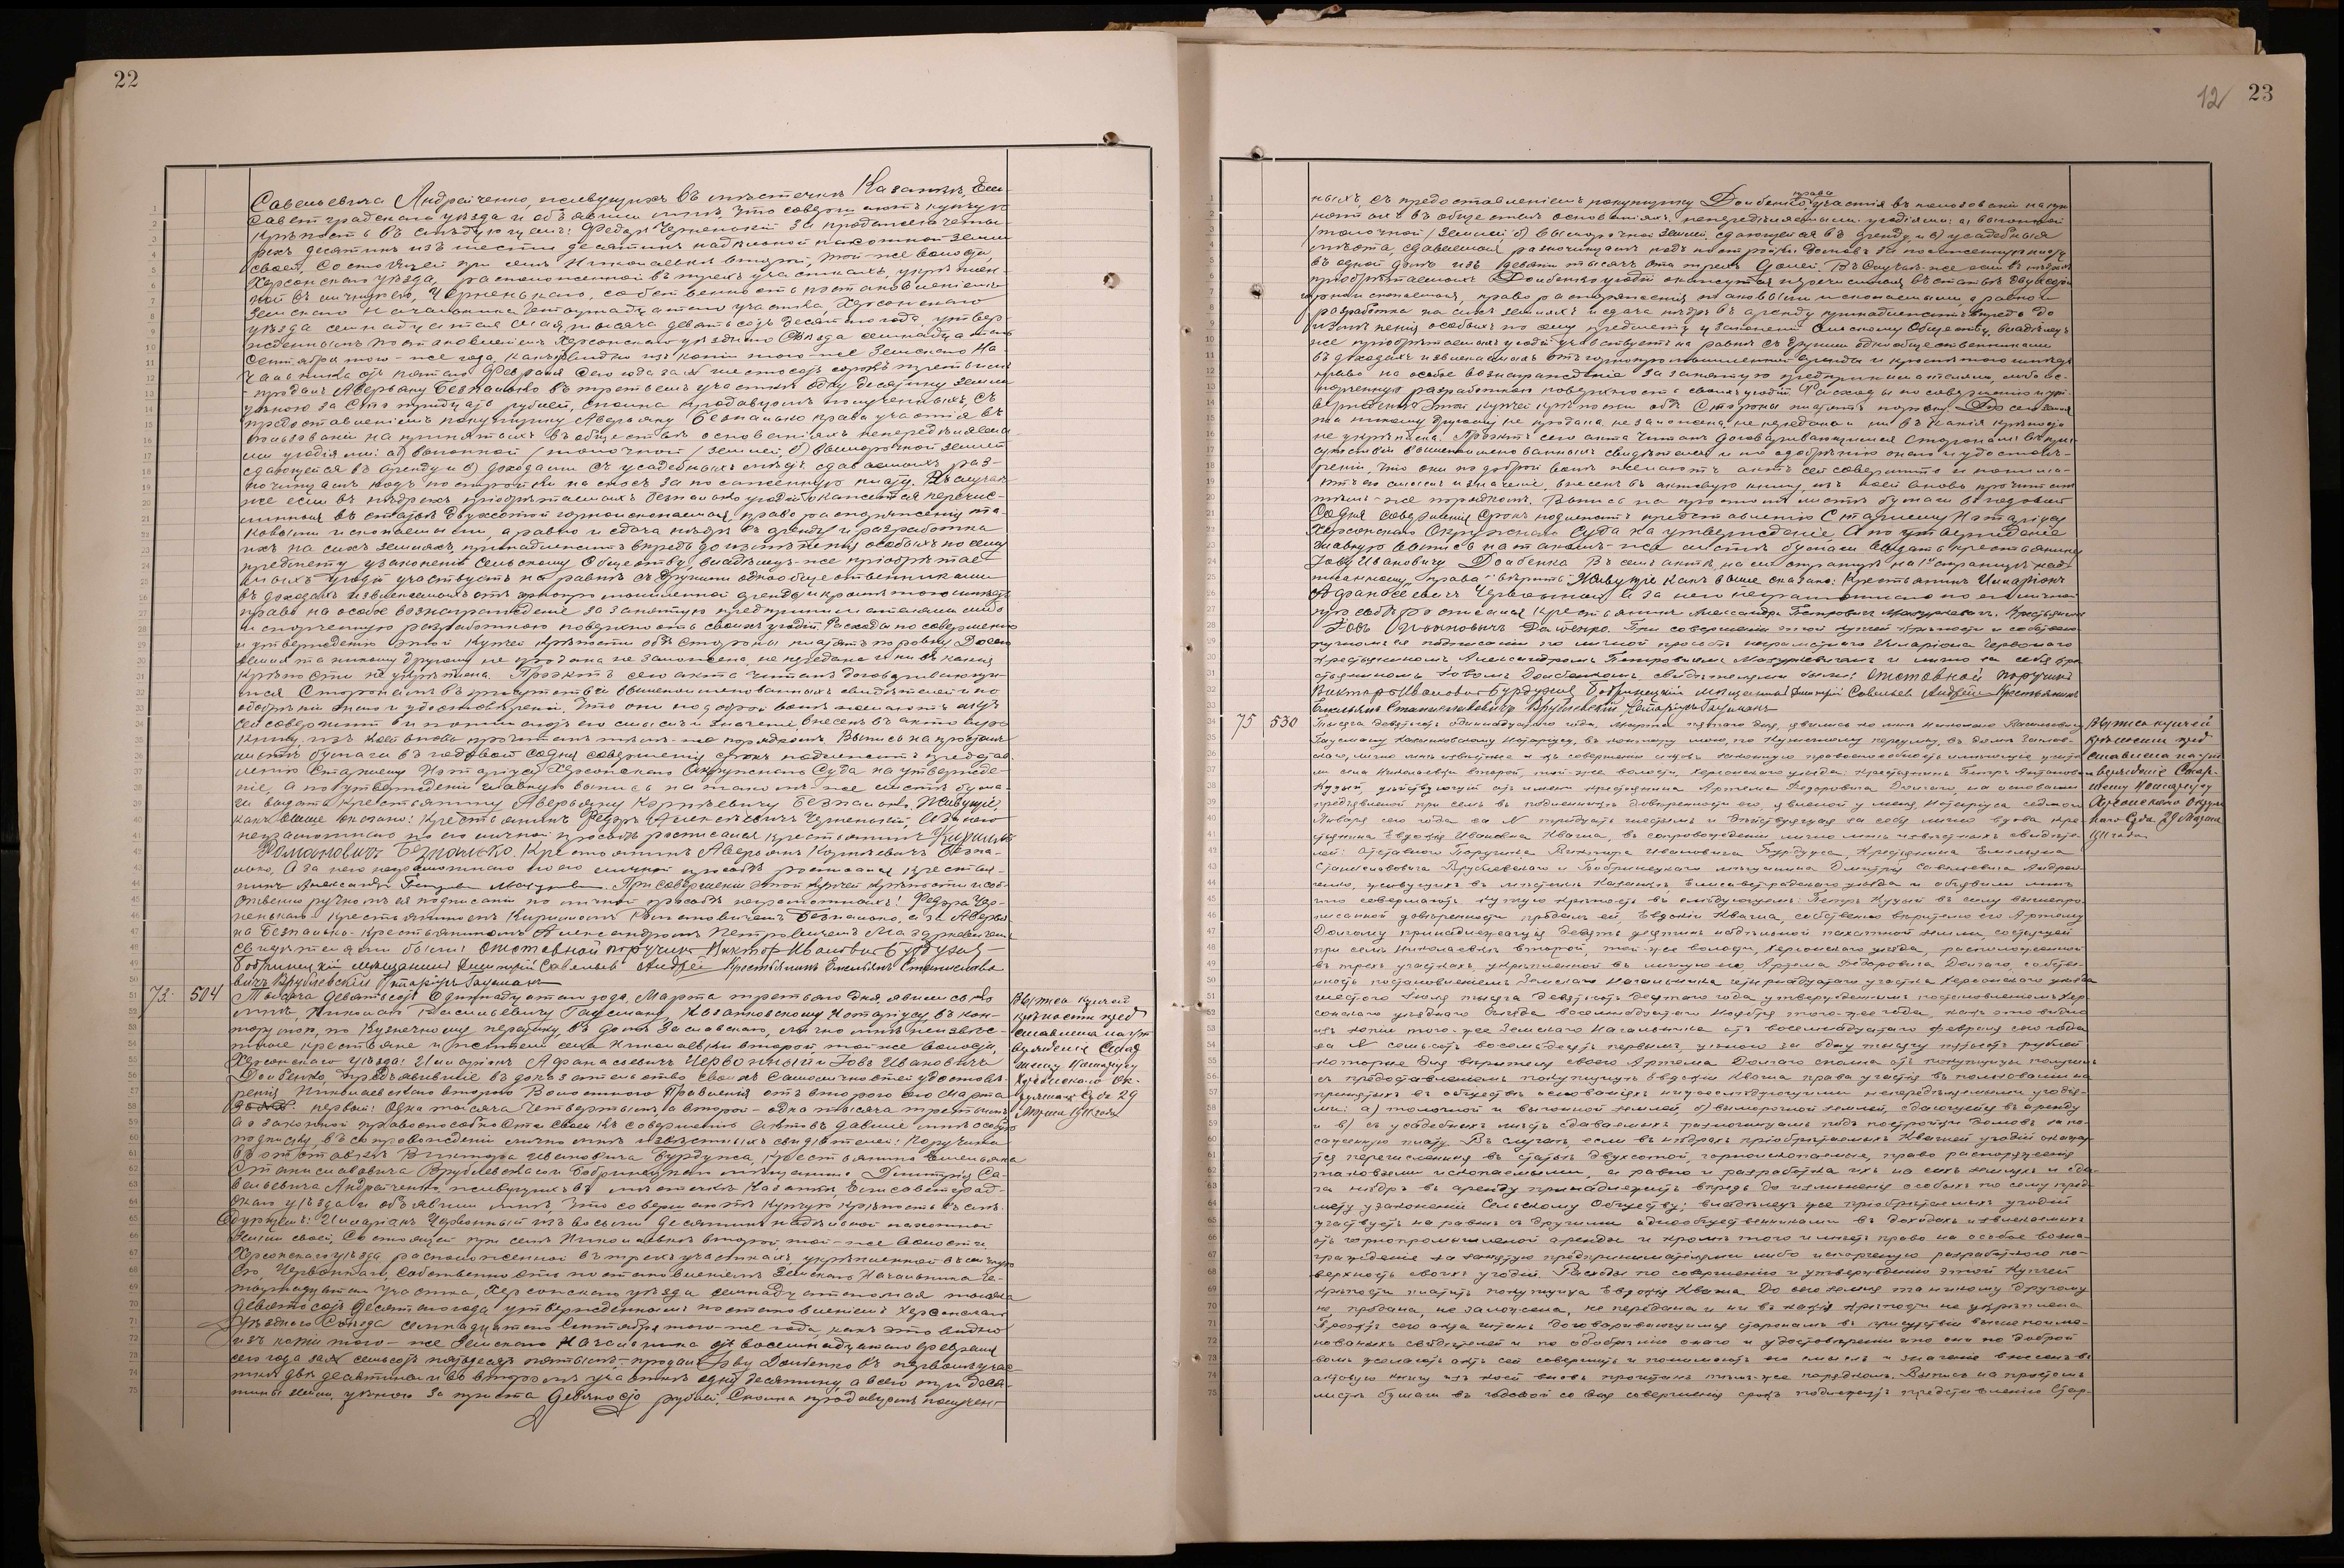 22
Савельевича Андрейченко, живущихъ въ мѣстечкѣ Казанкѣ, Ели-
саветградскаго уѣзда и объявили мнѣ, что совершаютъ купчую
крѣпость въ слѣдующемъ: Федоръ Черненькій за проданіемъ четы-
рехъ десятинъ изъ шести десятинъ надѣльной пахотной земли
своей, состоящей при селѣ Николаевкѣ второй, той-же волости,
Херсонскаго уѣзда, расположенной въ трехъ участкахъ, укрѣплен-
ной въ личную его, Черненькаго, собственность постановленіемъ
Земскаго Начальника четырнадцатаго участка, Херсонскаго
уѣзда семнадцатаго мая, тысяча девятьсотъ десятаго года, утвер-
жденнымъ постановленіемъ Херсонскаго уѣзднаго Съѣзда семнадцатаго
Сентября того-же года, какъ видно изъ копіи того-же Земскаго На-
чальника отъ пятаго Февраля сего года за № шестьсотъ сорокъ третьимъ
продалъ Аверьяну Безпалько въ третьемъ участкѣ одну десятину земли
цѣною за сто тридцать рублей, сполна продавцомъ полученныхъ, съ
предоставленіемъ покупщику Аверьяну Безпалько права участія въ
пользованіи на принятыхъ въ обществѣ основаніяхъ непередѣляемы-
ми угодіями: а) выгонной /толочной/ землей, б) выморочной землей
сдающейся въ аренду и в) доходами съ усадебныхъ мѣстъ сдаваемыхъ раз-
ночинцамъ подъ постройки на сносъ за посаженную плату. Въ случаѣ
же если въ нѣдрахъ пріобрѣтаемыхъ Безпалько угодій окажутся перечис-
ленныя въ статьѣ двухсотой горноископаемыя, право распоряженія та-
ковыми ископаемыми, а равно и сдача нѣдръ въ аренду и разработка
ихъ на сихъ земляхъ, принадлежитъ впредь до измѣненія особыхъ по сему
предмету узаконеній Сельскому Обществу, владѣлецъ-же пріобрѣтае-
мыхъ угодій участвуетъ на равнѣ съ другими однообщественниками
въ доходахъ извлекаемыхъ отъ горнопромышленной аренды и кромѣ того имѣетъ
право на особое вознагражденіе за занятую предпринимателями либо
испорченную разработкою поверхность своихъ угодій. Расходы по совершенію
и утвержденію этой купчей крѣпости обѣ стороны платятъ поровну. До сего
земля та никому другому не продана, не заложена, не передана и ни въ какія
крѣпости не укрѣплена. Проэктъ сего акта читанъ договариваю­щи-
мся сторонамъ въ присутствіи вышепоименованныхъ свидѣтелей и по
одобреніи онаго и удостовѣреніи, что они по доброй волѣ желаютъ актъ
сей совершить и понимаютъ его смыслъ и значеніе, внесенъ въ актовую
книгу, изъ коей вновь прочитанъ тѣмъ-же порядкомъ. Выпись на простомъ
листѣ бумаги въ годовой со дня совершенія срокъ подлежитъ представ-
ленію Старшему Нотаріусу Херсонскаго Окружнаго Суда на утвержде-
ніе, а по утвержденіи главную выпись на такомъ-же листѣ бума-
ги выдать крестьянину Аверьяну Корнѣевичу Безпалько. Живущіе,
какъ выше сказано: крестьянинъ Федоръ Алексѣевичъ Черненькій, а за него
неграмотнаго по его личной просьбѣ росписался крестьянинъ Кириллъ
Романовичъ Безпалько. Крестьянинъ Аверьянъ Корнѣевичъ Безпа-
лько, а за него неграмотнаго по его личной просьбѣ росписался крестья-
нинъ Александръ Петровъ Мазуркевичъ. При совершеніи этой купчей крѣпости и соб-
ственноручномъ ея подписаніи по личной просьбѣ неграмотныхъ: Федора Чер-
ненькаго - крестьяниномъ Кирилломъ Романовичемъ Безпалько, а за Аверья-
на Безпалько - крестьяниномъ Александромъ Петровичемъ Мазуркевичемъ
свидѣтелями были: Отставной поручикъ Викторъ Ивановичъ Бурдузя
Бобринецкій мѣщанинъ Дмитрій Савельевъ Андрей Крестьянинъ Емельянъ Станиславо
вичъ Врублевскій Нотаріусъ Гаусманъ
73. 504 Тысяча девятьсотъ одиннадцатаго года, Марта третьяго дня, явились ко
мнѣ, Николаю Васильевичу Гаусману, Казанковскому Нотаріусу, въ кон-
тору мою, по Кузнечному переулку, въ домѣ Заславскаго, лично мнѣ неизвѣст-
ные крестьяне и жители села Николаевки второй той же волости,
Херсонскаго уѣзда: Иларіонъ Афанасьевичъ Червонный и Іовъ Ивановичъ
Долбенко, предъявившіе въ доказательство своихъ самоличностей удостовѣ-
ренія Николаевскаго второго Волостного Правленія отъ второго сего Марта
за №№ первый: одна тысяча четвертымъ, а второй - одна тысяча третьимъ
а о законной правоспособности своей къ совершенію актовъ давшіе мнѣ особую
подписку, въ сопровожденіи лично мнѣ извѣстныхъ свидѣтелей: Поручика
въ отставкѣ Виктора Ивановича Бурдузя, крестьянина Емельяна
Станиславовича Врублевскаго и Бобринецкаго мѣщанина Дмитрія Са-
вельевича Андрейченко, живущихъ въ мѣстечкѣ Казанкѣ, Елисаветград-
скаго уѣзда и объявили мнѣ, что совершаютъ купчую крѣпость въ слѣ-
дующемъ: Иларіонъ Червонный изъ восьми десятинъ надѣльной пахотной
земли своей, состоящей при селѣ Николаевкѣ второй, той-же волости,
Херсонскаго уѣзда, расположенной въ трехъ участкахъ, укрѣпленной въ личную
его, Червоннаго, собственность постановленіемъ Земскаго Начальника че-
тырнадцатаго участка, Херсонскаго уѣзда семнадцатаго мая тысяча
девятьсотъ десятаго года утвержденнымъ постановленіемъ Херсонскаго
Уѣзднаго Съѣзда семнадцатаго Сентября того-же года, какъ это видно
изъ копіи того-же Земскаго Начальника отъ восемнадцатаго февраля
сего года за № семьсотъ пятьдесятъ пятымъ, - продалъ Іову Долбенко въ первомъ учас-
ткѣ двѣ десятины и во второмъ участкѣ одну десятину, а всего три деся-
тины земли, цѣною за триста девяносто рублей, сполна продавцомъ получен-
Выпись купчей
крѣпости пред
ставлена на ут
вержденіе Стар
шему Нотаріусу
Херсонскаго Ок-
ружнаго Суда 29
Марта 1911 года
12 23
ныхъ, съ предоставленіемъ покупщику Долбенко права участія въ пользованіи на при
нятыхъ въ обществѣ основаніяхъ, непередѣляемыми угодіями: а) выгонной
/толочной/ землей б) выморочной землей, сдающейся въ аренду и в) усадебныя
мѣста, сдаваемыя разночинцамъ подъ постройки домовъ за посаженную плату
приобрѣтаемыхъ Долбенко угодій окажутся перечисленныя въ статьѣ двухсотой
горноископаемыя, право распоряженія таковыми ископаемыми, а равно и
разработка на сихъ земляхъ и сдача нѣдръ въ аренду принадлежитъ впредь до
измѣненія особыхъ по сему предмету узаконеній Сельскому Обществу, владѣлецъ
же пріобрѣтаемыхъ угодій участвуетъ на равнѣ съ другими однообщественниками
въ доходахъ извлекаемыхъ отъ горнопромышленной аренды и кромѣ того имѣетъ
право на особое вознагражденіе за занятую предпринимателями, либо ис-
порченную разработкою поверхность своихъ угодій. Расходы по совершенію и ут-
вержденію этой купчей крѣпости обѣ стороны платятъ поровну. До сего земля
та никому другому не продана, не заложена, не передана и ни въ какія крѣпости
не укрѣплена. Проэктъ сего акта читанъ договаривающимся сторонамъ въ при-
сутствіи вышепоименованныхъ свидѣтелей и по одобреніи онаго и удостовѣ-
реніи, что они по доброй волѣ желаютъ актъ сей совершить и понима-
ютъ его смыслъ и значеніе, внесенъ въ актовую книгу изъ коей вновь прочитанъ
тѣмъ-же порядкомъ. Выпись на простомъ листѣ бумаги въ годовой
со дня совершенія срокъ подлежитъ представленію Старшему Нотаріусу
Херсонскаго Окружнаго Суда на утвержденіе, а по утвержденіи
главную выпись на такомъ-же листѣ бумаги выдать крестьянину
Іову Ивановичу Долбенко. Въ семъ актѣ, на сей страницѣ на 1й строкѣ над-
писанному „права“ вѣрить. Живущіе какъ выше сказано: Крестьянинъ Иларіонъ
Афанасьевичъ Червонный а за него неграмотнаго по его личной
просьбѣ росписался крестьянинъ Александръ Петровичъ Мазуркевичъ. Крестьянинъ
Іовъ Ивановичъ Долбенко. При совершеніи этой купчей крѣпости и собственно
ручномъ ея подписаніи по личной просьбѣ неграмотнаго Иларіона Червоннаго
крестьяниномъ Александромъ Петровичемъ Мазуркевичемъ и лично за себя кре
стьяниномъ Іовомъ Долбенкомъ, свидѣтелями были: Отставной поручикъ
Викторъ Ивановичъ Бурдузя Бобринецкій мѣщанинъ Дмитрій Савельевъ Андрей Крестьянинъ
Емельянъ Станиславовичъ Врублевскій Нотаріусъ Гаусманъ
75 530 Тысяча девятьсотъ одиннадцатаго года, Марта пятаго дня, явились ко мнѣ Николаю Васильевичу
Гаусману Казанковскому Нотаріусу, въ контору мою, по Кузнечному переулку, въ домѣ Заслав-
скаго, лично мнѣ извѣстные и къ совершенію актовъ законную правоспособность имѣющіе жите
ли села Николаевки второй, той-же волости, Херсонскаго уѣзда: крестьянинъ Петръ Антоновичъ
Куцый, дѣйствующій отъ имени крестьянина Артема Федоровича Долгаго, на основаніи
предъявленной при семъ въ подлинникѣ довѣренности его, явленой у меня, Нотаріуса седьмого
Января сего года за № тридцать шестымъ и дѣйствующая за себя лично вдова кре-
стьянина Евдокія Ивановна Кваша, въ сопровожденіи лично мнѣ извѣстныхъ свидѣте-
лей: отставного Поручика Виктора Ивановича Бурдузя, Крестьянина Емельяна
Станиславовича Врублевскаго и Бобринецкаго мѣщанина Дмитрія Савельевича Андрей-
ченко, живущихъ въ мѣстечкѣ Казанкѣ, Елисаветградскаго уѣзда и объявили мнѣ
что совершаютъ купчую крѣпость въ слѣдующемъ: Петръ Куцый въ силу вышепро-
писанной довѣренности продалъ ей, Евдокіи Кваша, собственно вѣрителю его Артему
Долгому принадлежащія девять десятинъ надѣльной пахатной земли, состоящей
при селѣ Николаевкѣ второй, той-же волости, Херсонскаго уѣзда, расположенной
въ трехъ участкахъ, укрѣпленной въ личную его, Артема Федоровича Долгаго, собствен-
ность постановленіемъ Земскаго Начальника четырнадцатаго участка Херсонскаго уѣзда
шестого Іюля тысяча девятьсотъ десятаго года утвержденнымъ постановленіемъ Хер-
сонскаго уѣзднаго Съѣзда восемнадцатаго Ноября того-же года, какъ это видно
изъ копіи того-же Земскаго Начальника отъ восемнадцатаго февраля сего года
за № семьсотъ восемьдесятъ первымъ, цѣною за одну тысячу пятьсотъ рублей
которые для вѣрителя своего Артема Долгаго сполна отъ покупщицы получилъ
съ предоставленіемъ покупщицѣ Евдокіи Кваша права участія въ пользованіи на
принятыхъ въ обществѣ основаніяхъ нижеслѣдующими непередѣляемыми угодія-
ми: а) толочной и выгонной землей, б) выморочной землей, сдающейся въ аренду
и в) съ усадебныхъ мѣстъ сдаваемыхъ разночинцамъ подъ постройки домовъ за по-
саженную плату. Въ случаѣ, если въ нѣдрахъ пріобрѣтаемыхъ Квашей угодій окажут-
ся перечисленныя въ статьѣ двухсотой, горноископаемыя, право распоряженія
таковыми ископаемыми, а равно и разработка ихъ на сихъ земляхъ и сда-
ча нѣдръ въ аренду принадлежитъ впредь до измѣненія особыхъ по сему пред-
мету узаконеній Сельскому Обществу; владѣлецъ же пріобрѣтаемыхъ угодій
участвуетъ на равнѣ съ другими однообщественниками въ доходахъ извлекаемыхъ
отъ горнопромышленной аренды и кромѣ того имѣетъ право на особое возна-
гражденіе за занятую предпринимателями либо испорченную разработкою по-
верхность своихъ угодій. Расходы по совершенію и утвержденію этой купчей
крѣпости платитъ покупщица Евдокія Кваша. До сего земля та никому другому
не продана, не заложена, не передана и ни въ какія крѣпости не укрѣплена
Проэктъ сего акта читанъ договаривающимся сторонамъ въ присутствіи вышепоиме-
нованыхъ свидѣтелей и по одобреніи онаго и удостовѣреніи что они по доброй
волѣ желаютъ актъ сей совершить и понимаютъ его смыслъ и значеніе внесенъ въ
актовую книгу изъ коей вновь прочитанъ тѣмъ-же порядкомъ. Выпись на простомъ
листѣ бумаги въ годовой со дня совершенія срокъ подлежитъ представленію Стар-
Выпись купчей
крѣпости пред
ставлена на ут
вержденіе Стар-
шему Нотаріусу
Херсонскаго Окруж
наго Суда 29 Марта
1911 года